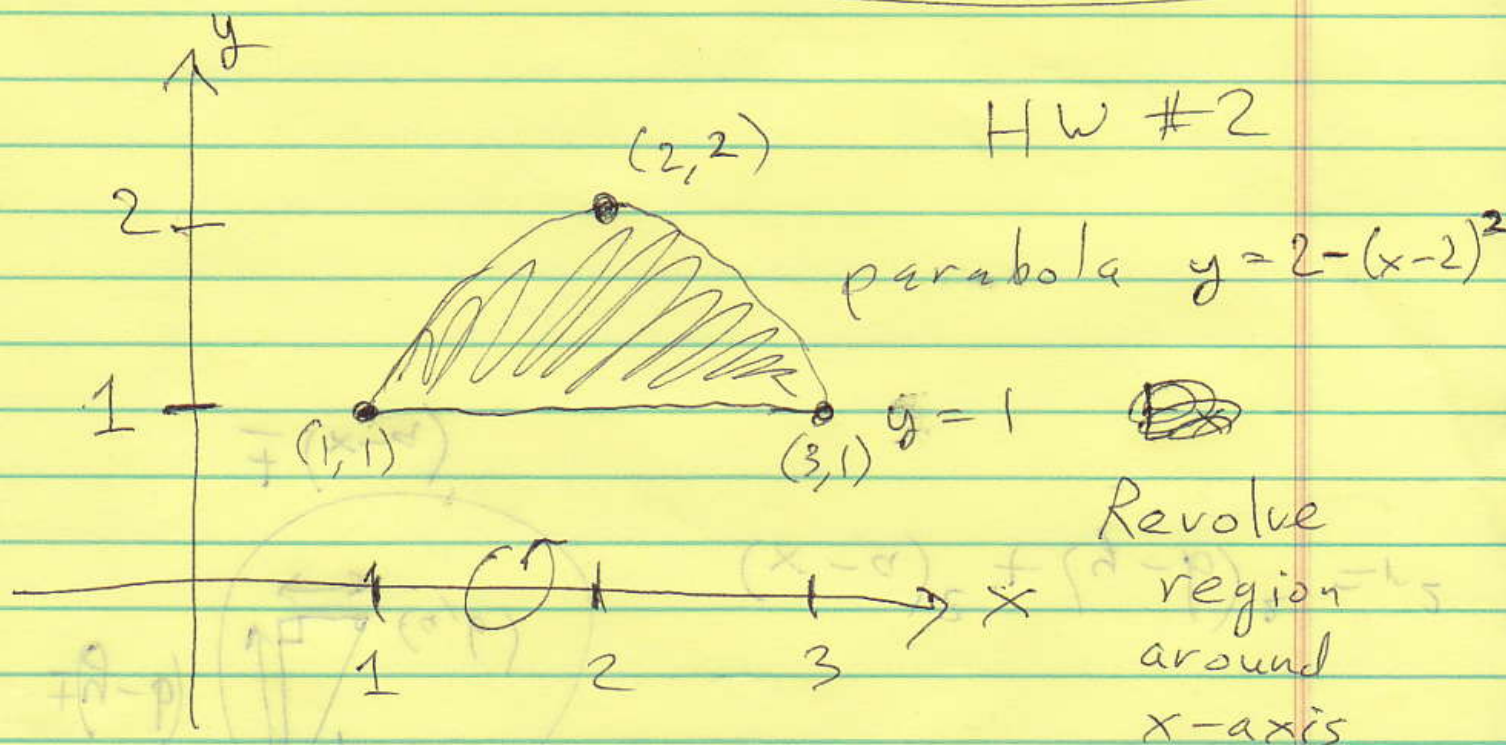 y
HW #2
(2,2)
2
parabola y = 2-(x-2)²
1
y = 1
(1,1)
(3,1)
Revolve
x
region
1
2
3
around
x-axis